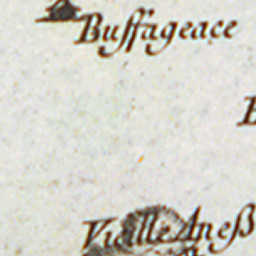 Buffageace
Vieille Aneß